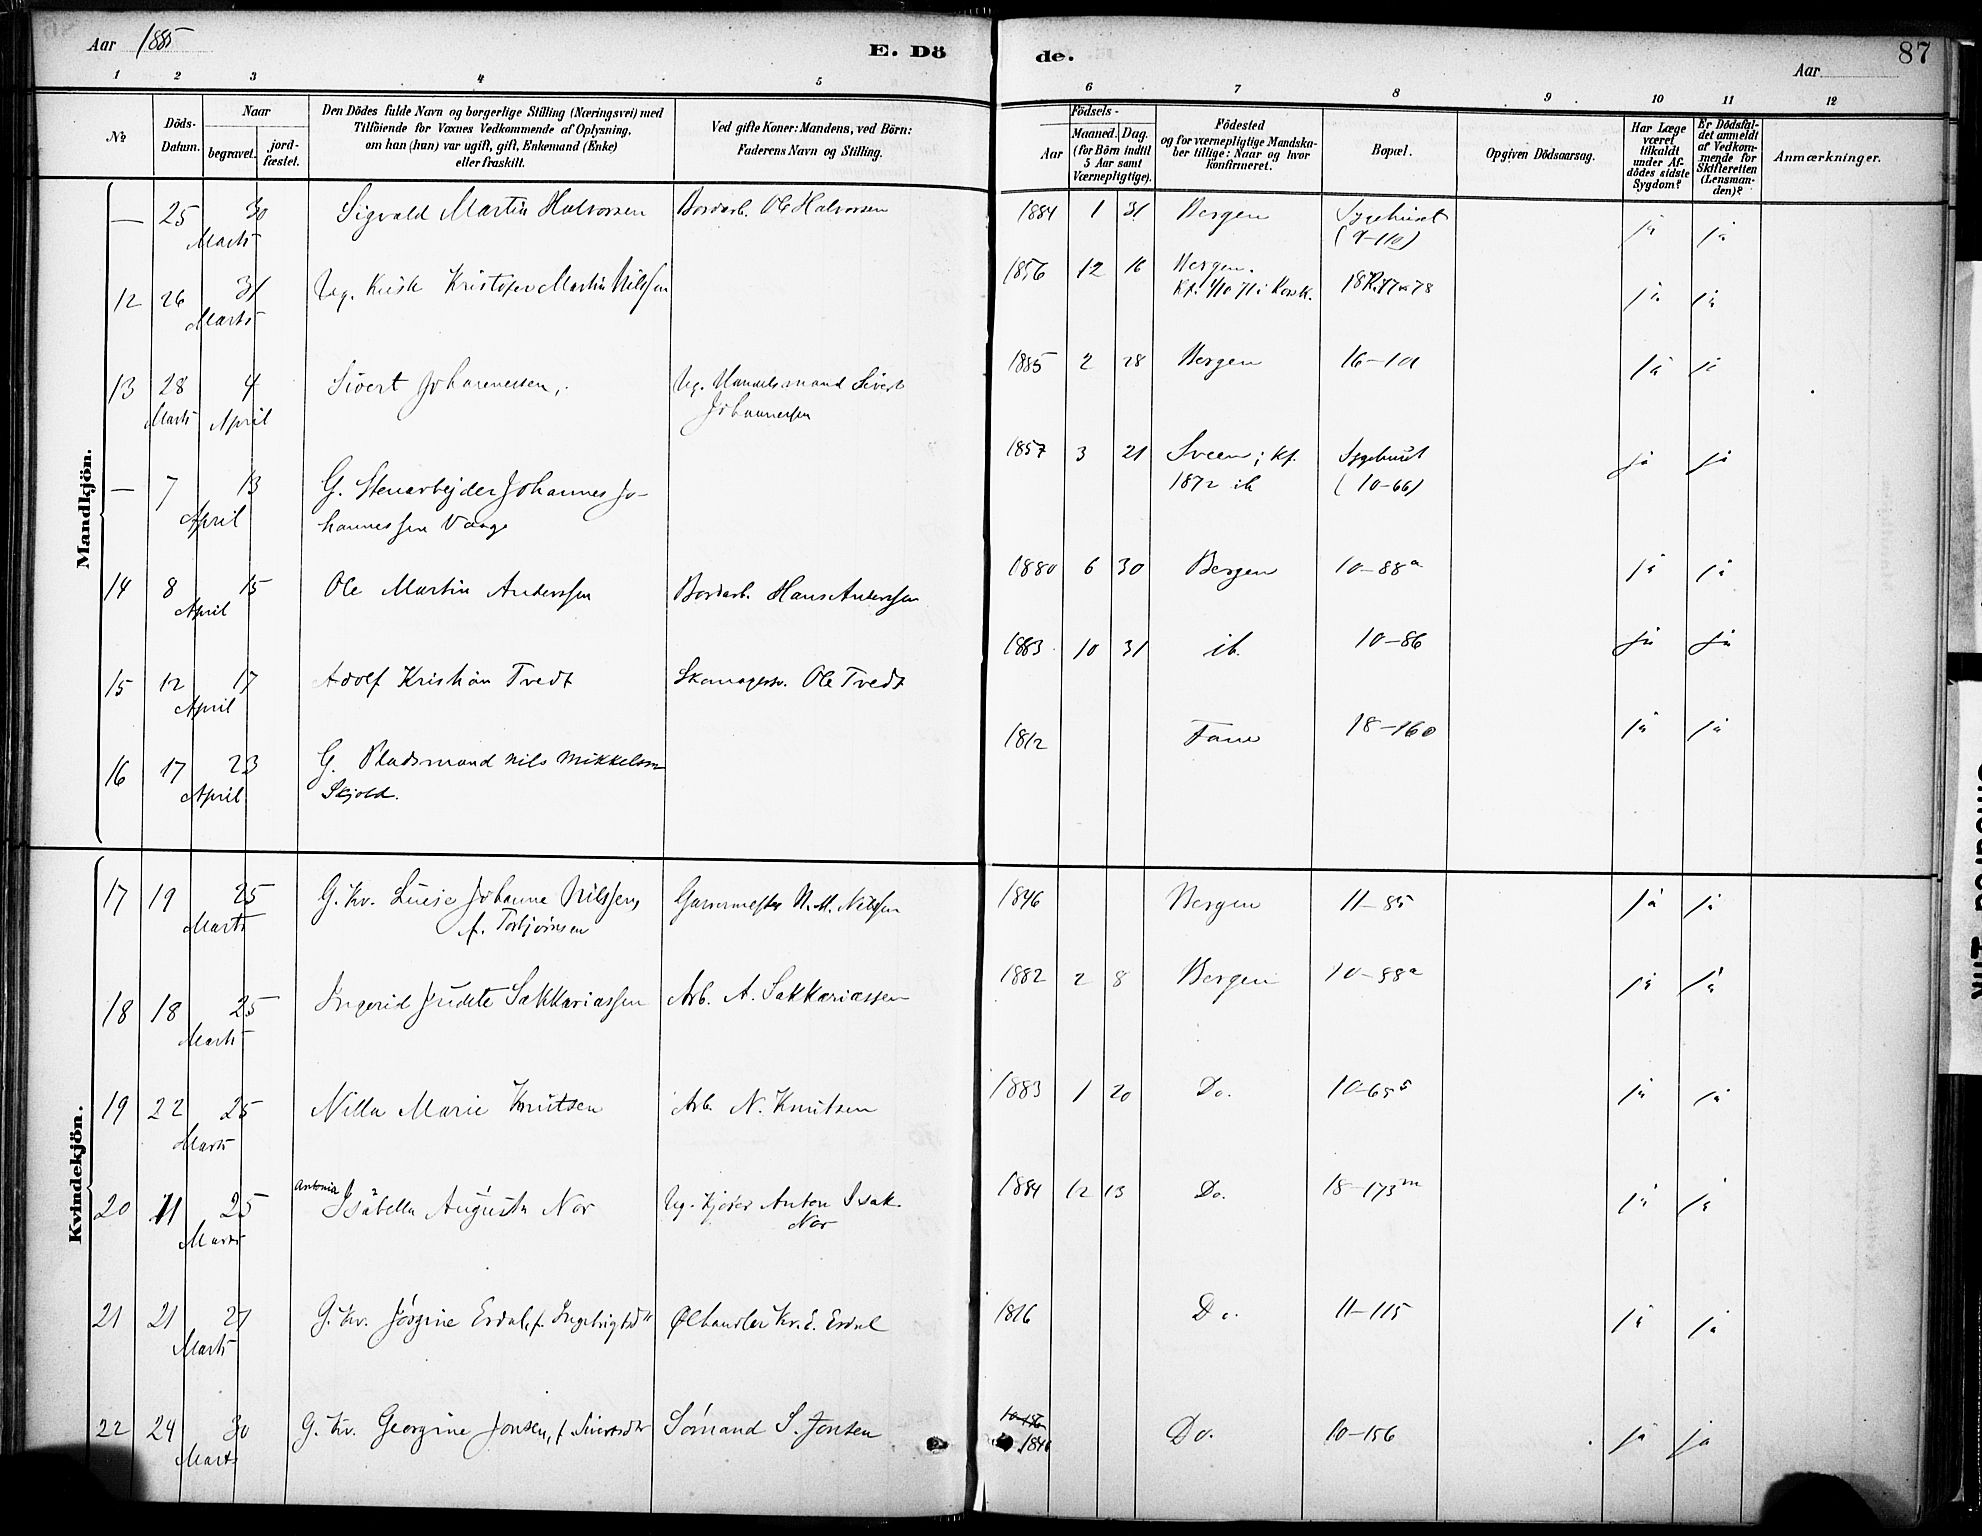 Aar 1885
E. Dö
de.
87
Aar
1 2 3 4 5 6 7 8 9 10 11 12
No
Döds-
Datum.
Naar
begravet.
jord-
fæstet.
Den Dödes fulde Navn og borgerlige Stilling (Næringsvei) med
Tilföiende for Voxnes Vedkommende af Oplysning,
om han (hun) var ugift, gift, Enkemand (Enke)
eller fraskilt.
Ved gifte Koner: Mandens, ved Börn:
Faderens Navn og Stilling.
Födsels-
Aar
Maaned.
Dag.
(for Börn indtil
5 Aar samt
Værnepligtige).
Födested
og for værnepligtige Mandska-
ber tillige: Naar og hvor
konfirmeret.
Bopæl.
Opgiven Dödsaarsag.
Har Læge
været
tilkaldt
under Af-
dödes sidste
Sygdom?
Er Dödsfal-
det anmeldt
af Vedkom-
mende for
Skifteretten
(Lensman-
den)?
Anmærkninger.
Mandkjön.
— 25 30 Sigvald Martin Halvorsen Bordarb. Ole Halvorsen 1884 1 31 Bergen Sygehuset ja ja
Marts
12 26 31 Ug. Kusk Kristofer Martin Nilssen 1856 12 16 Bergen. ja ja
Marts
13 28 4 Sivert Johannesen, Ug. Handelsmand Sivert 1885 2 28 Bergen ja ja
Marts April Johannessen
— 7 13 G. Stenarbejder Johannes Jo- 1857 3 21 Sveen; Kf. Sygehuset ja ja
April hannessen Vaage 1872 ib (10-66)
14 8 15 Ole Martin Anderssen Bordarb. Hans Anderssen 1880 6 30 Bergen 10-88a ja ja
April
15 12 17 Adolf Kristian Tvedt Skomagersv. Ole Tvedt 1883 10 31 ib. 10-86 ja ja
April
16 17 23 G. Pladsmand Nils Mikkelsen 1812 Fane 18-160 ja ja
April Skjold.
Kvindekjön.
17 19 25 G. Kv. Lucie Johanne Nilssen, Garvermester N. M. Nilssen 1846 Bergen 11-85 ja ja
Marts f. Torbjörnsen
18 18 25 Ingerid Judete Sakkariassen Arb. A. Sakkariassen 1882 2 8 Bergen 10-88a ja ja
Marts
19 22 25 Nilla Marie Knutsen Arb. N. Knutsen 1883 1 20 Do. ja ja
Marts
Antonia
20 11 25 Isabella Augusta Nor Ug. Kjører Anton Isak 1884 12 13 Do. 18-173m ja ja
Marts Nor
21 21 27 G. Kv. Jörgine Erdal, f. Ingebrigtsdtr Ølhandler Kr. E. Erdal 1816 Do. 11-115 ja ja
Marts
22 24 30 G. Kv. Georgine Jonsen, f. Sivertsdtr Sömand S. Jonsen 1846 Do. 10-156 ja ja
Marts